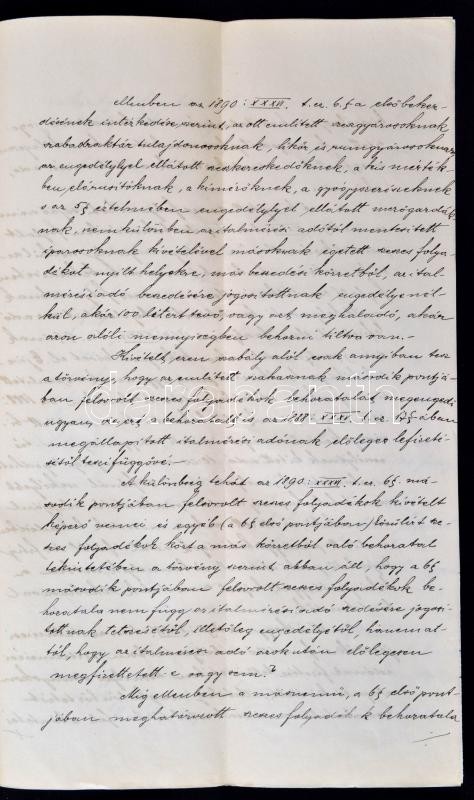 Ellenben az 1890: XXXVI. t. cz. 6. §-a első bekez-
désének intézkedése szerint, az ott említett szeszgyárosoknak,
szabadraktár tulajdonosoknak, likőr és rumgyárosoknak,
az engedélylyel ellátott szeszkereskedőknek, a kis mérték-
ben elárusítóknak, a kimérőknek, a gyógyszerészeknek
s az 5 § értelmében engedélylyel ellátott mezőgazdák-
nak, nemkülönben az italmérési adótól mentesített
iparosoknak kivételével másoknak égetett szeszes folya-
dékot nyílt helyekre, más beszedési körzetből, az ital-
mérési adó beszedésére jogosítottnak engedélye nél-
kül, akár 100 litert tevő, vagy azt meghaladó, akár
azon alóli mennyiségben behozni tiltva van.-
Kivételt ezen szabály alól csak annyiban tesz
a törvény, hogy az említett szakasznak második pontjá-
ban felsorolt szeszes folyadékok behozatalát megengedi
ugyan, de ezt a behozatalt is az 1888: XXXV. t. cz. §-ában
megállapított italmérési adónak előleges lefizeté-
sétől teszi függővé.-
A különbség tehát az 1890: XXXVI. t. cz. 6 §. má-
sodik pontjában felsorolt szeszes folyadékok kivételt
képező nemei és egyéb (a 6 § első pontjában) körülírt sze-
szes folyadékok közt a más körzetből való behozatal
tekintetében a törvény szerint abban áll, hogy a 6 §
második pontjában felsorolt szeszes folyadékok be-
hozatala nem függ az italmérési adó szedésére jogosí-
tottnak tetszésétől, illetőleg engedélyétől, hanem at-
tól, hogy az italmérési adó azok után előlegesen
megfizettetett e vagy sem?
Míg ellenben a másnemű, a 6 § első pont-
jában meghatározott szeszes folyadékok behozatala
darabanth